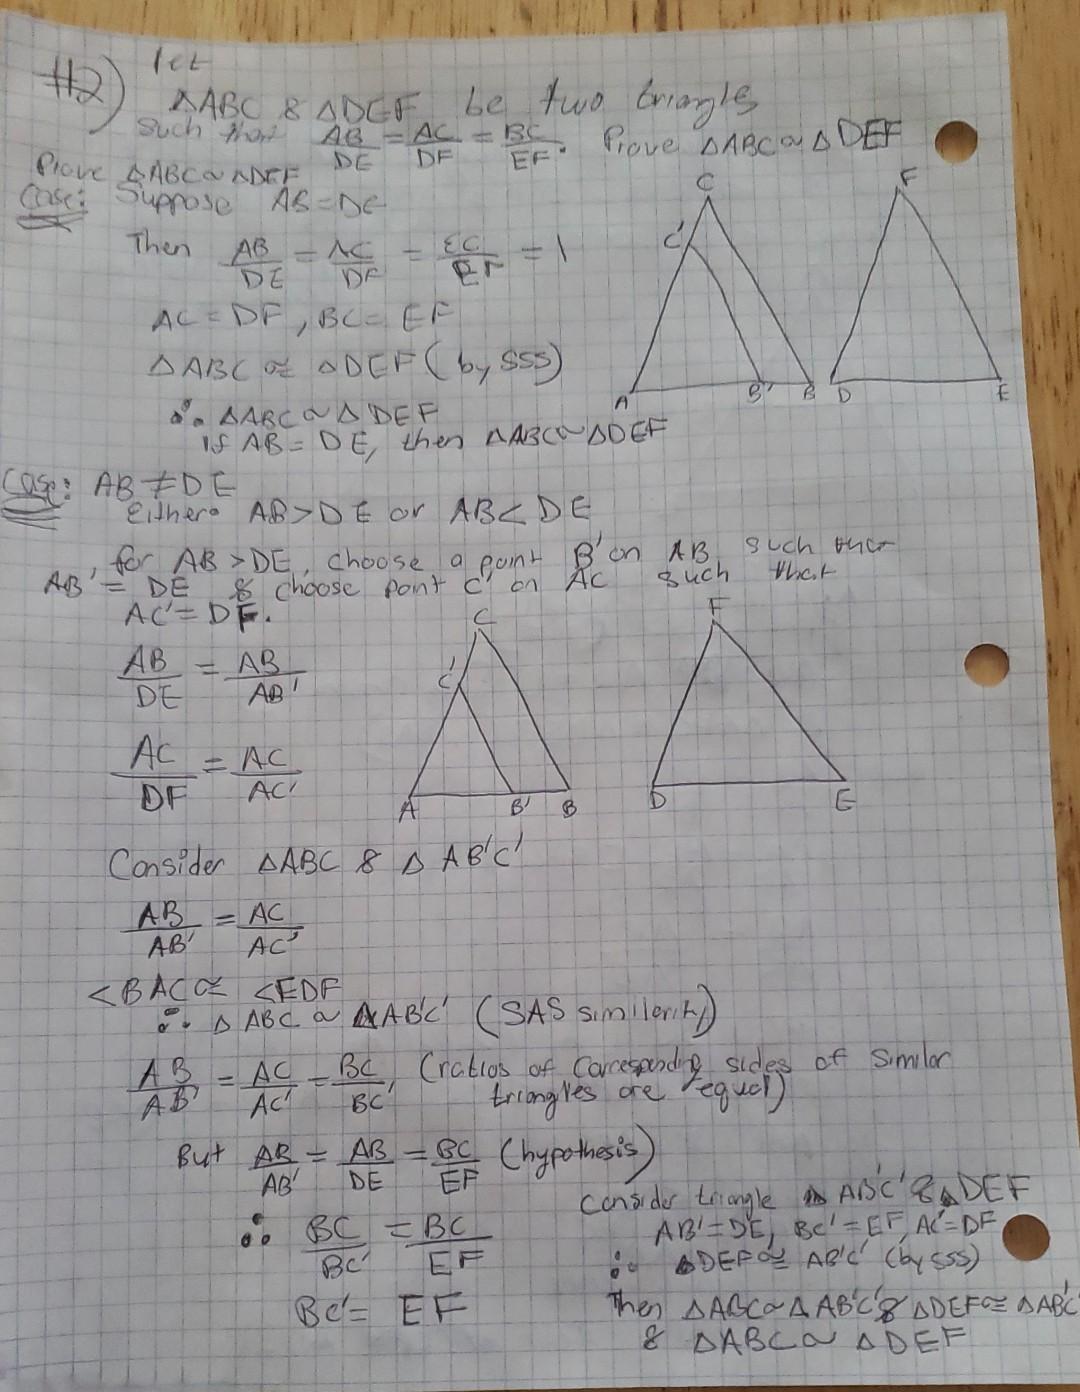 #2) let
△ABC & △DEF be two triangles
such that AB/DE = AC/DF = BC/EF. Prove △ABC ~ △DEF
Prove △ABC ~ △DEF
Case: Suppose AB = DE
Then AB/DE = AC/DF = BC/EF = 1
AC = DF, BC = EF
△ABC ≅ △DEF (by SSS)
∴ △ABC ~ △DEF
If AB = DE, then △ABC ~ △DEF
C
C'
A
B'
B
F
D
E
Case: AB ≠ DE
Either: AB > DE or AB < DE
, for AB > DE, choose a point B' on AB such that
AB' = DE & choose point C' on AC such that
AC' = DF.
AB/DE = AB/AB'
AC/DF = AC/AC'
C
C'
A
B'
B
F
D
E
Consider △ABC & △AB'C'
AB/AB' = AC/AC'
<BAC ≅ <EDF
∴ △ABC ~ △AB'C' (SAS similarity)
AB/AB' = AC/AC' = BC/BC' (ratios of corresponding sides of similar
triangles are equal)
But AB/AB' = AB/DE = BC/EF (hypothesis)
∴ BC/BC' = BC/EF
BC' = EF
Consider triangle △AB'C' & △DEF
AB' = DE, BC' = EF, AC' = DF
∴ △DEF ≅ AB'C' (by SSS)
Then △ABC ~ △AB'C' & △DEF ≅ △AB'C'
& △ABC ~ △DEF